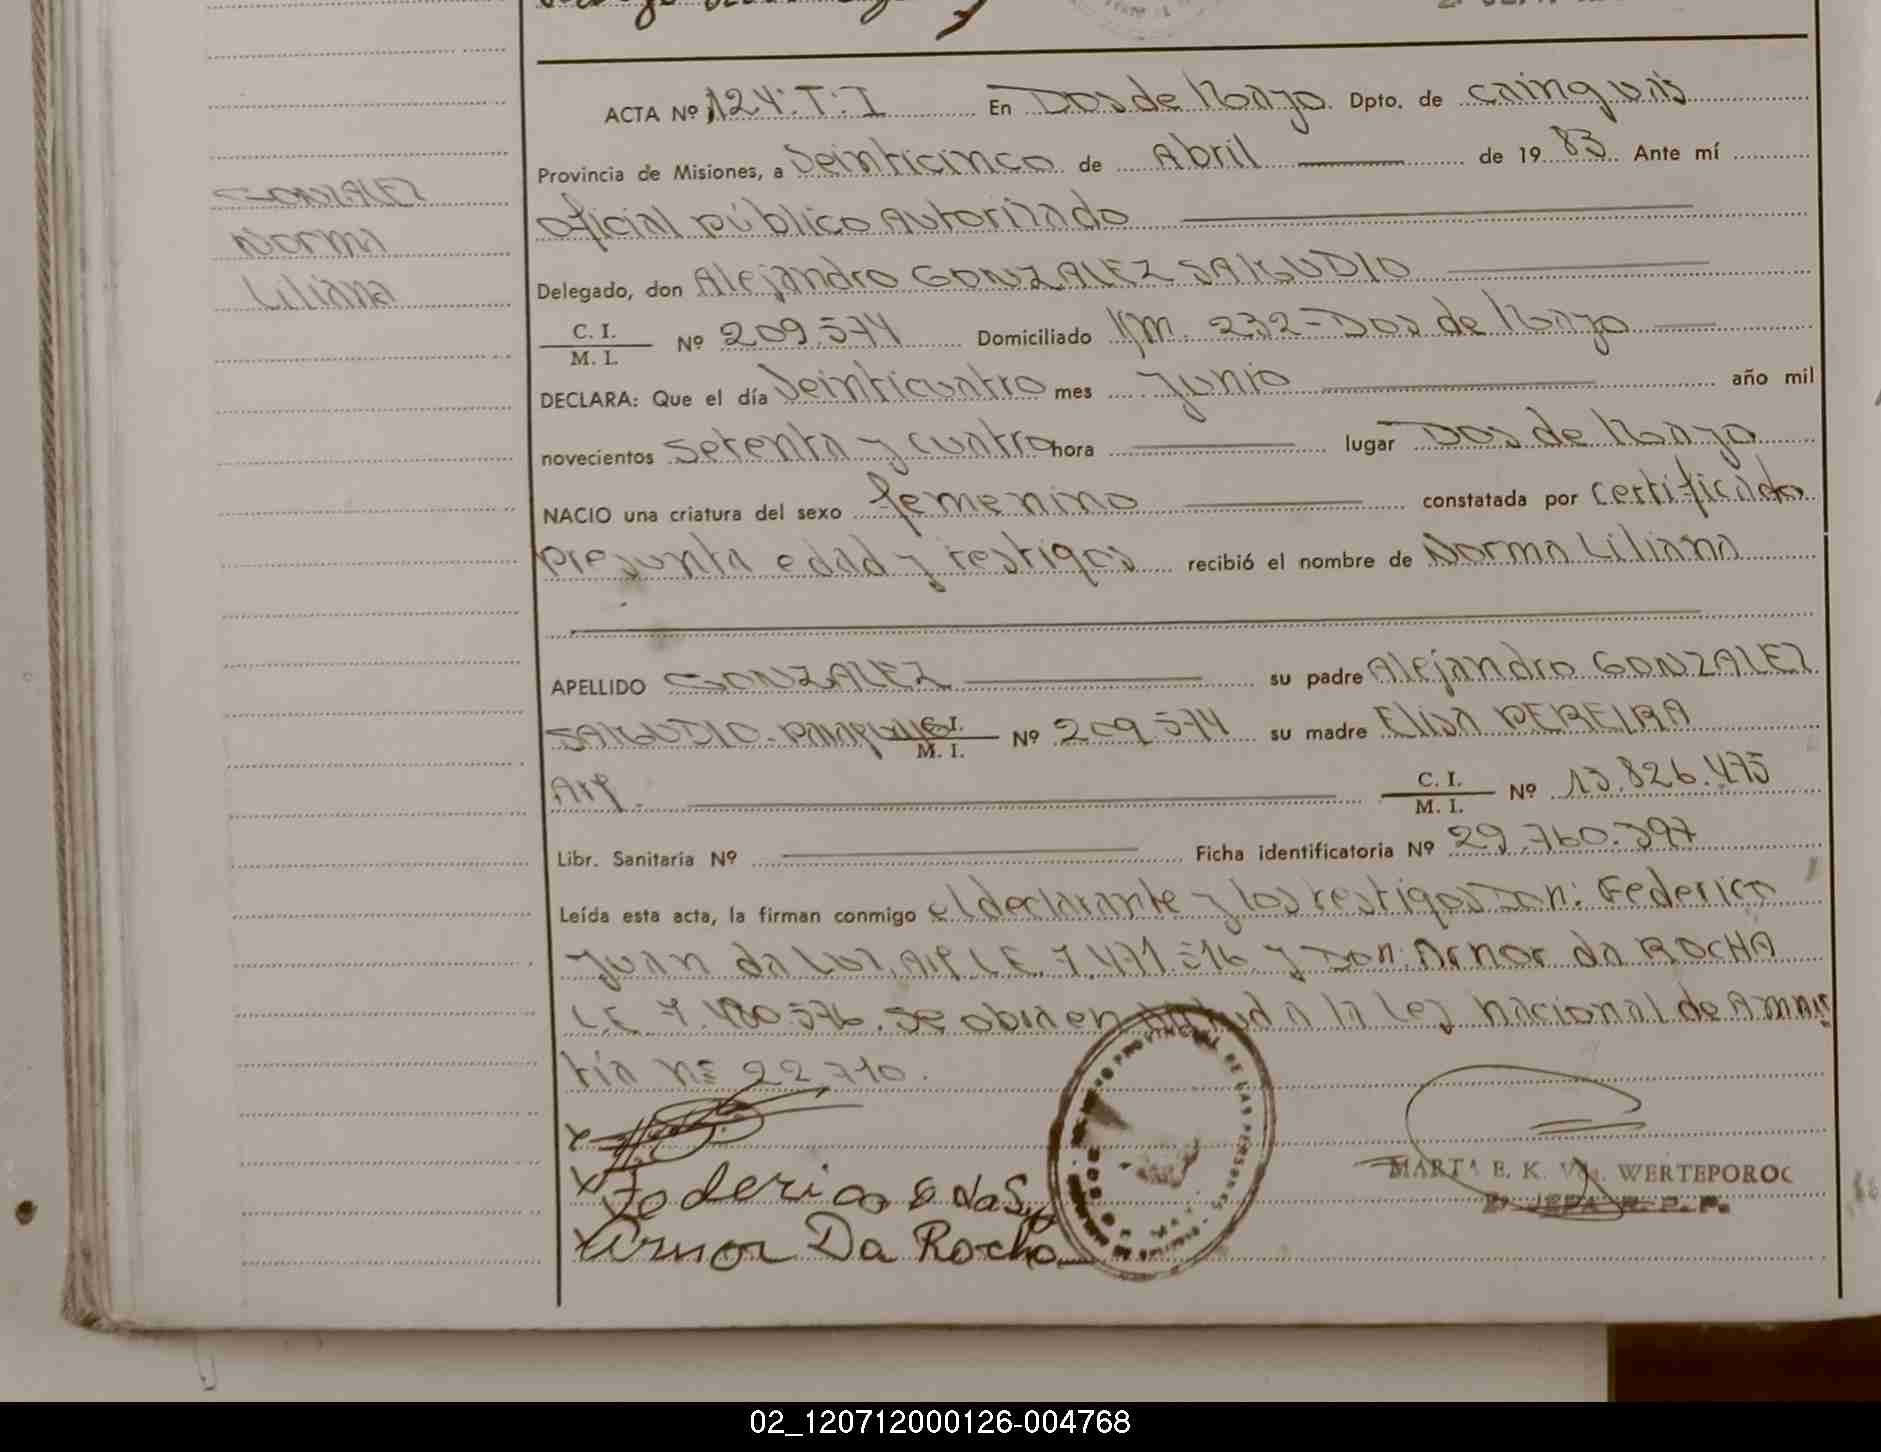 ACTA Nº 124. T. I En Dos de Mayo Dpto. de Cainguás
Provincia de Misiones, a Veinticinco de Abril de 1983 Ante mí
Oficial público Autorizado
GONZALEZ
Norma
Liliana
Delegado, don Alejandro GONZALEZ SAMUDIO
C. I.
M. I. Nº 209.574 Domiciliado Km. 232 - Dos de Mayo
DECLARA: Que el día Veinticuatro mes Junio año mil
novecientos setenta y cuatro hora lugar Dos de Mayo
NACIO una criatura del sexo femenino constatada por certificado
presunta edad y testigos recibió el nombre de Norma Liliana
APELLIDO GONZALEZ su padre Alejandro GONZALEZ
SAMUDIO. C. I. M. I. Nº 209.574 su madre Elisa PEREIRA
Arg. C. I. M. I. Nº 13.826.475
Libr. Sanitaria Nº Ficha identificatoria Nº 29.760.397
Leída esta acta, la firman conmigo el declarante y los testigos Don: Federico
Juan da Luz, Arg. L.E. 7.471.516 y Don: Arnor da ROCHA
L.E 7.480.576. Se obra en a la Ley Nacional de Amnis
tía Nº 22.710.
x
x Federico
x Arnor Da Rocha
MARTA E. K. WERTEPOROC
JEFA R. P. P.
02_120712000126-004768